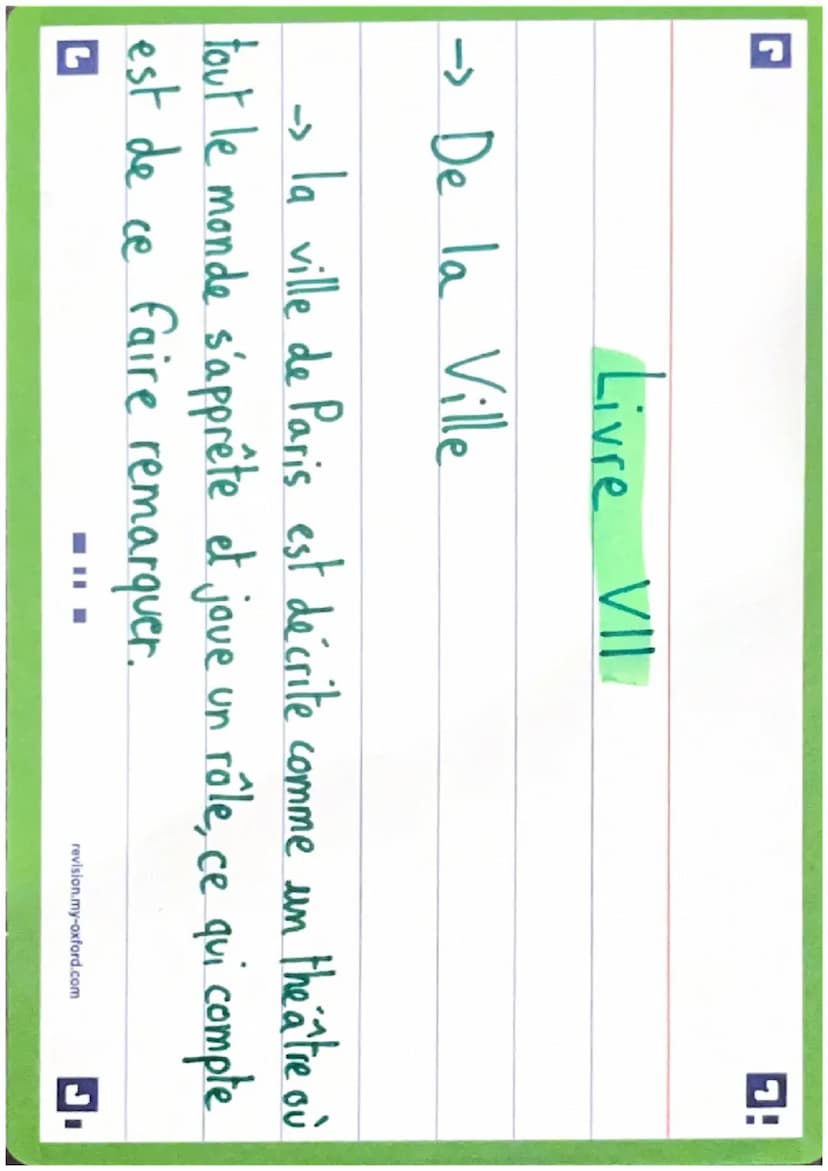 Livre VII
-> De la Ville
-> la ville de Paris est décrite comme un théâtre où
tout le monde s'apprête et joue un rôle, ce qui compte
est de ce faire remarquer.
revision.my-oxford.com